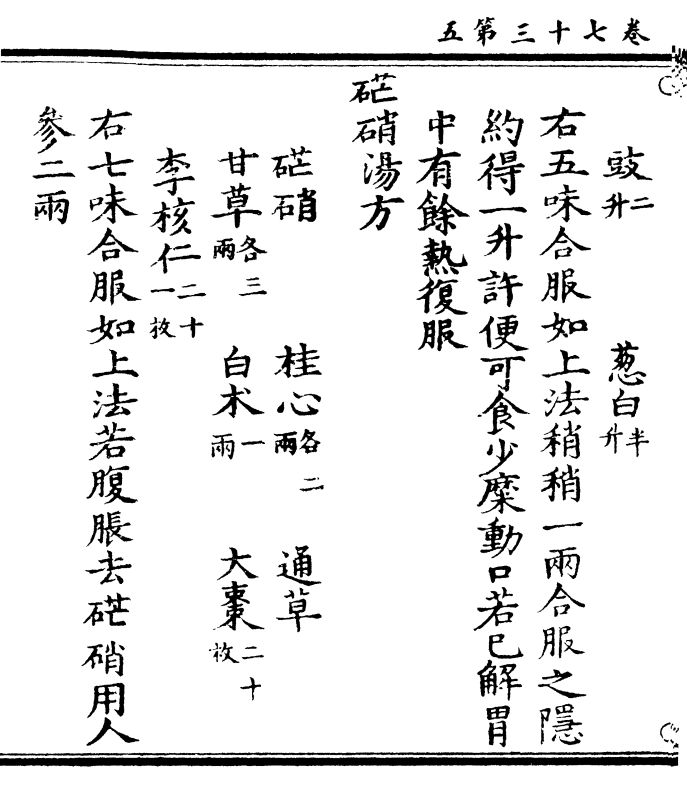 卷七十三第五
豉二升 葱白半升
右五味合服如上法稍稍一兩合服之隱
約得一升許便可食少糜動口若已解胃
中有餘熱復服
硭硝湯方
硭硝 桂心各二兩 通草
甘草各三兩 白术一兩 大棗二十枚
李核仁二十一枚
右七味合服如上法若腹脹去硭硝用人
參二兩